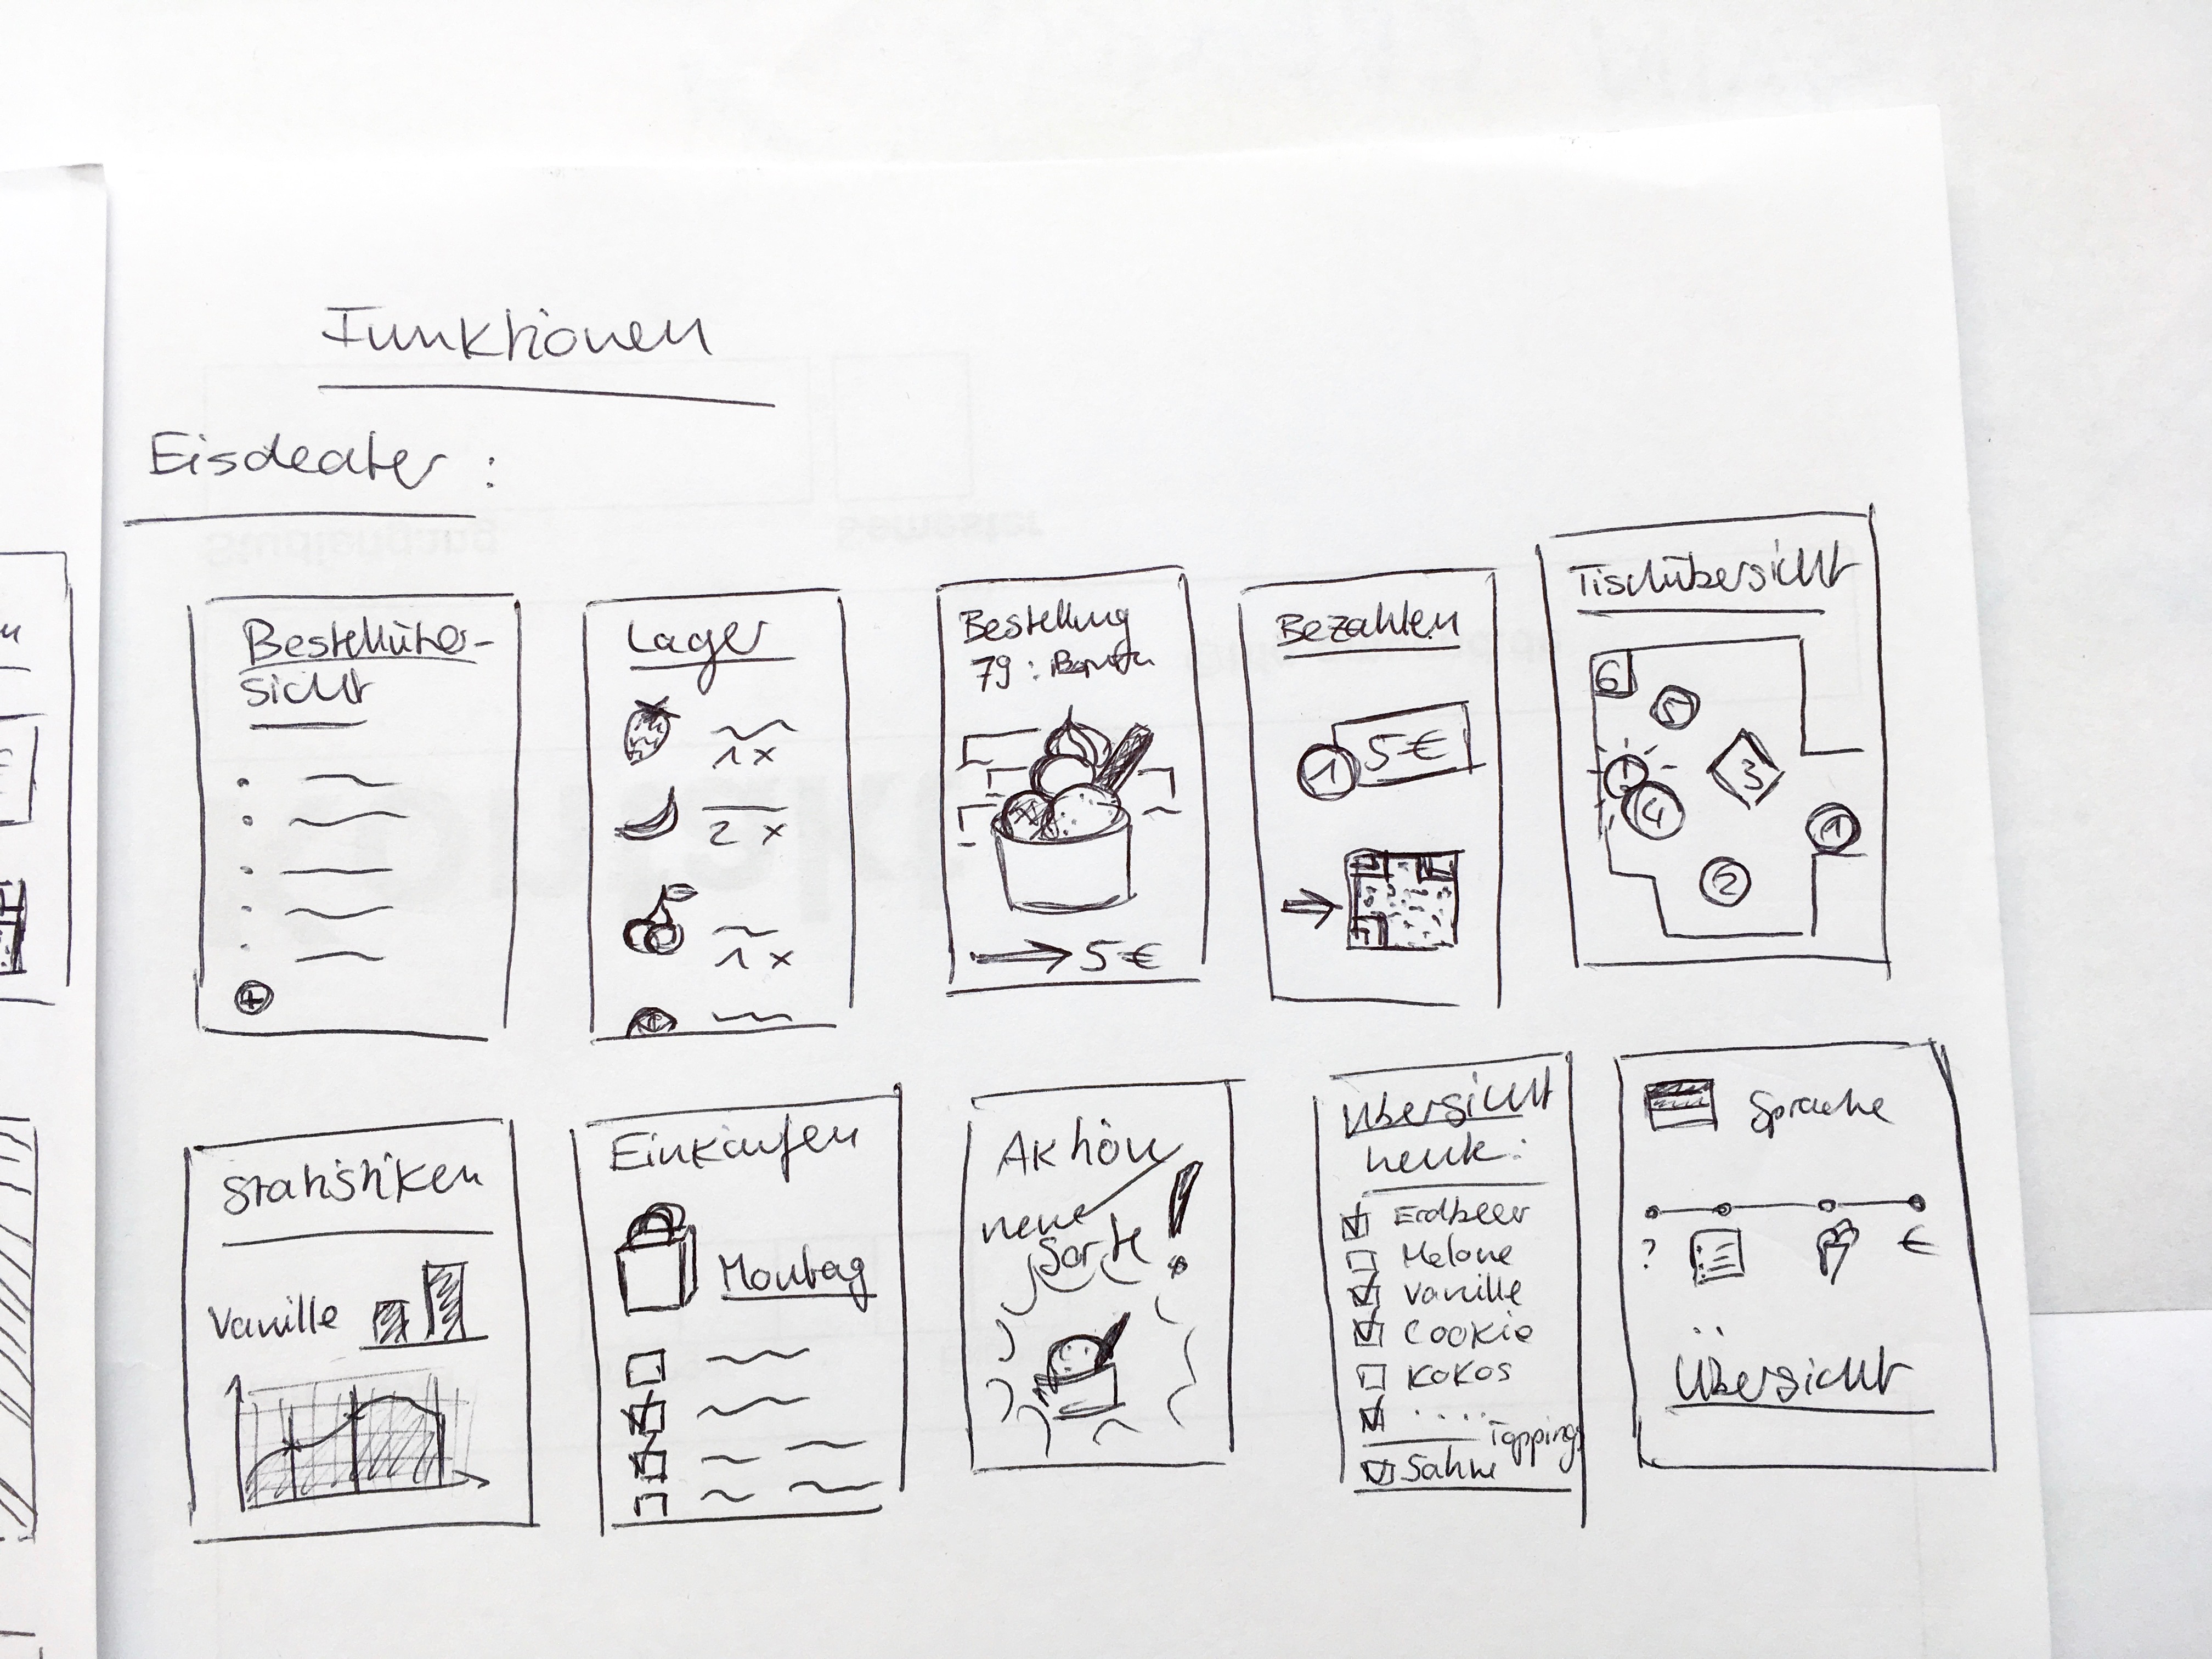 Funktionen
Eisdealer :
Bestellüber-
sicht
Lager
1x
2 x
1x
Bestellung
79 :
→ 5€
Bezahlen
1 5€
Tischübersicht
6
5
1
3
4
1
2
Statistiken
Vanille
Einkaufen
Montag
Aktion
neue
Sorte !
Übersicht
heute :
Erdbeer
Melone
Vanille
Cookie
Kokos
. . . .
Toppings
Sahne
Sprache
? €
Übersicht